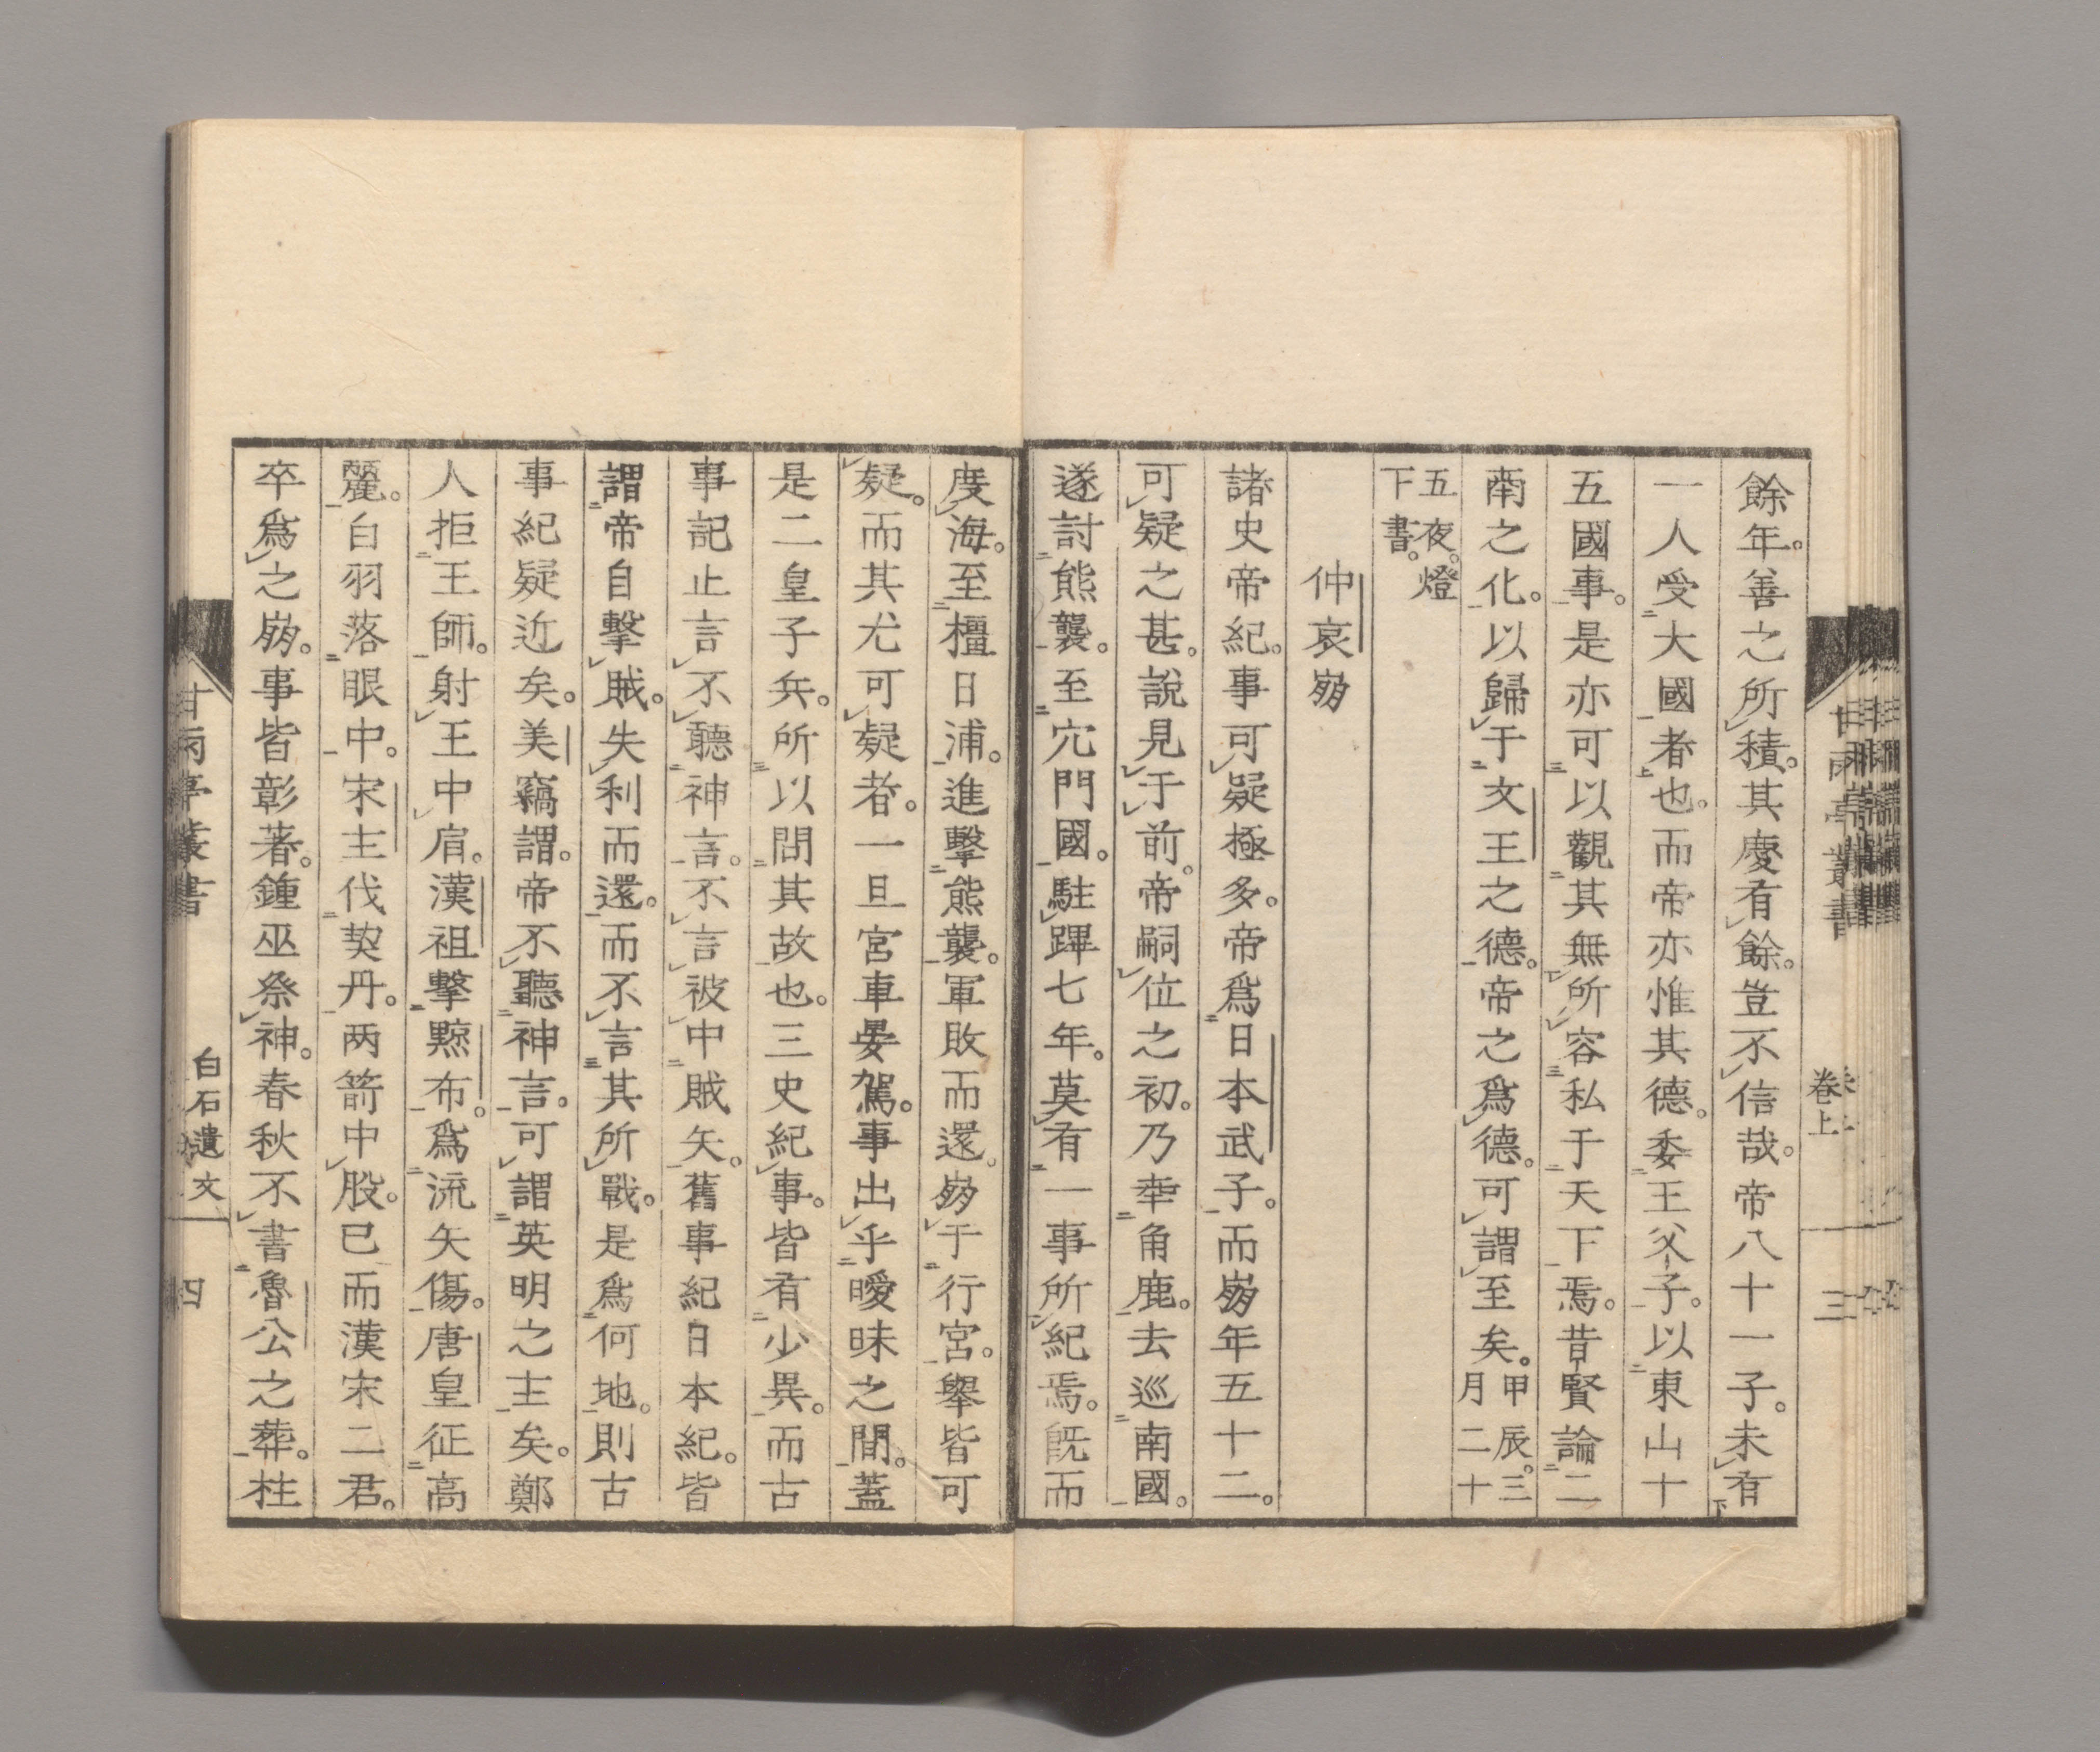 餘年。善之所積。其慶有餘。豈不信哉。帝八十一子。未有
一人受大國者也。而帝亦惟其德。委王父子。以東山十
五國事。是亦可以觀其無所容私于天下焉。昔賢論二
南之化。以歸于文王之德。帝之爲德。可謂至矣。甲辰。三月二十
五夜。燈下書。
仲哀崩
諸史帝紀。事可疑極多。帝爲日本武子。而崩年五十二。
可疑之甚。說見于前。帝嗣位之初。乃幸角鹿。去巡南國。
遂討熊襲。至穴門國。駐蹕七年。莫有一事所紀焉。旣而
度海。至橿日浦。進擊熊襲。軍敗而還。崩于行宮。舉皆可
疑。而其尤可疑者。一旦宮車晏駕。事出乎曖昧之間。蓋
是二皇子兵。所以問其故也。三史紀事。皆有少異。而古
事記止言不聽神言。不言被中賊矢。舊事紀日本紀。皆
謂帝自擊賊。失利而還。而不言其所戰。是爲何地。則古
事紀疑近矣。美竊謂。帝不聽神言。可謂英明之主矣。鄭
人拒王師。射王中肩。漢祖擊黥布。爲流矢傷。唐皇征高
麗。白羽落眼中。宋主伐契丹。両箭中股。已而漢宋二君。
卒爲之崩。事皆彰著。鍾巫祭神。春秋不書魯公之葬。柱
甘雨亭叢書
卷上
三
甘雨亭叢書
白石遺文
四